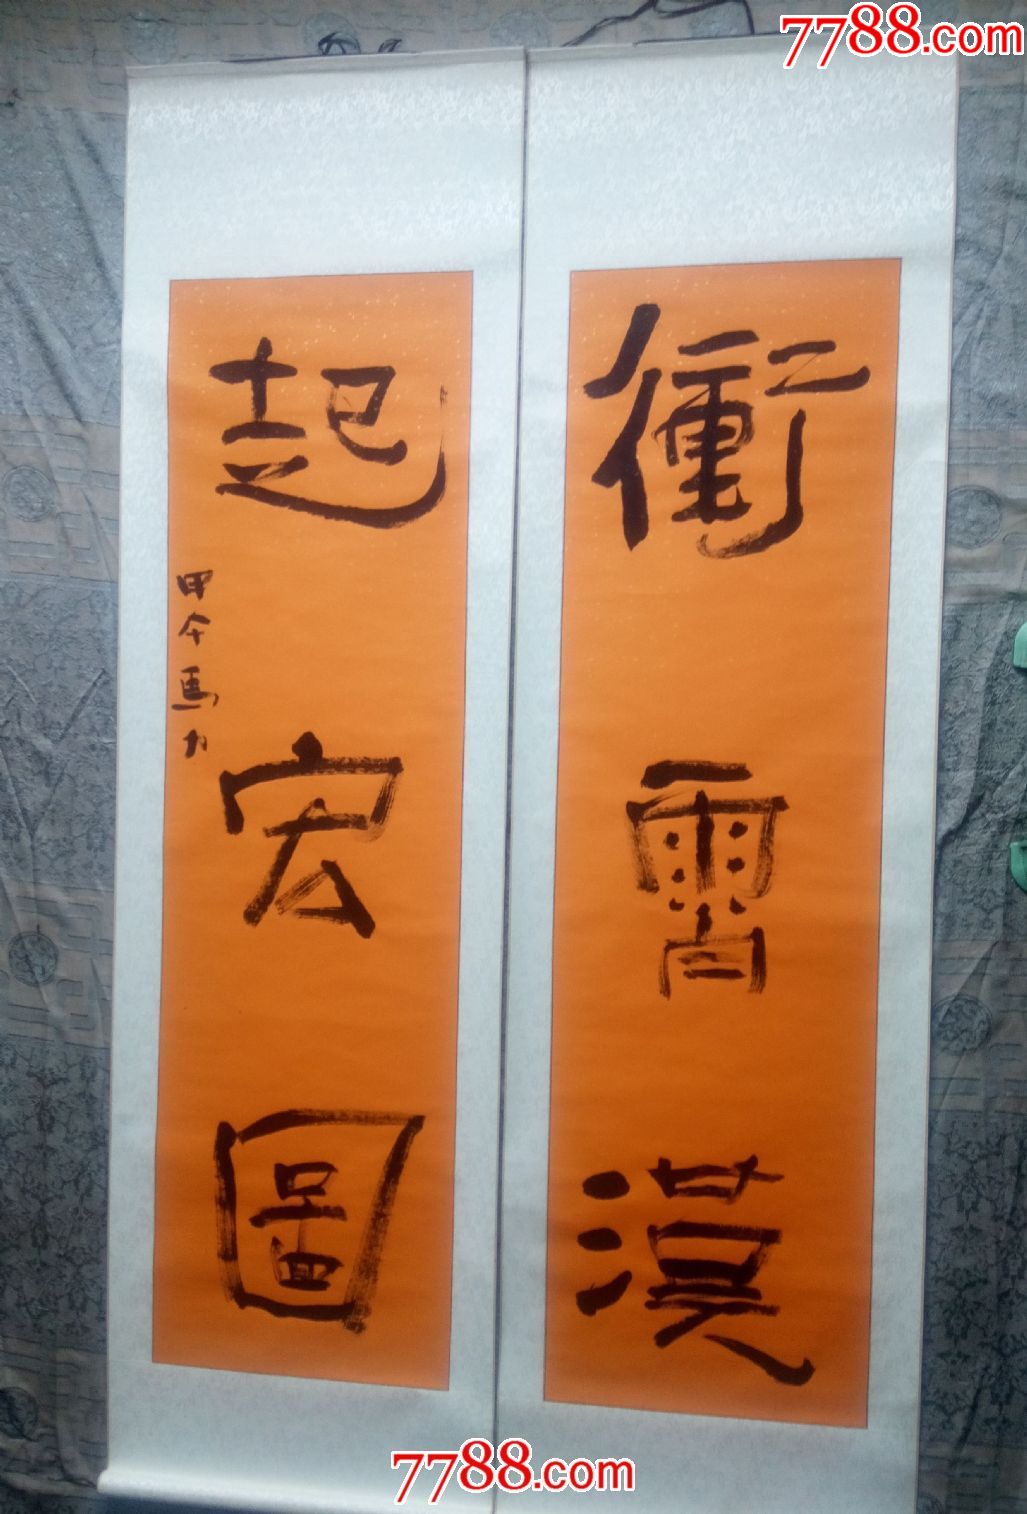 7788.com
衝霄漢
起宏圖
甲午馬力
7788.com